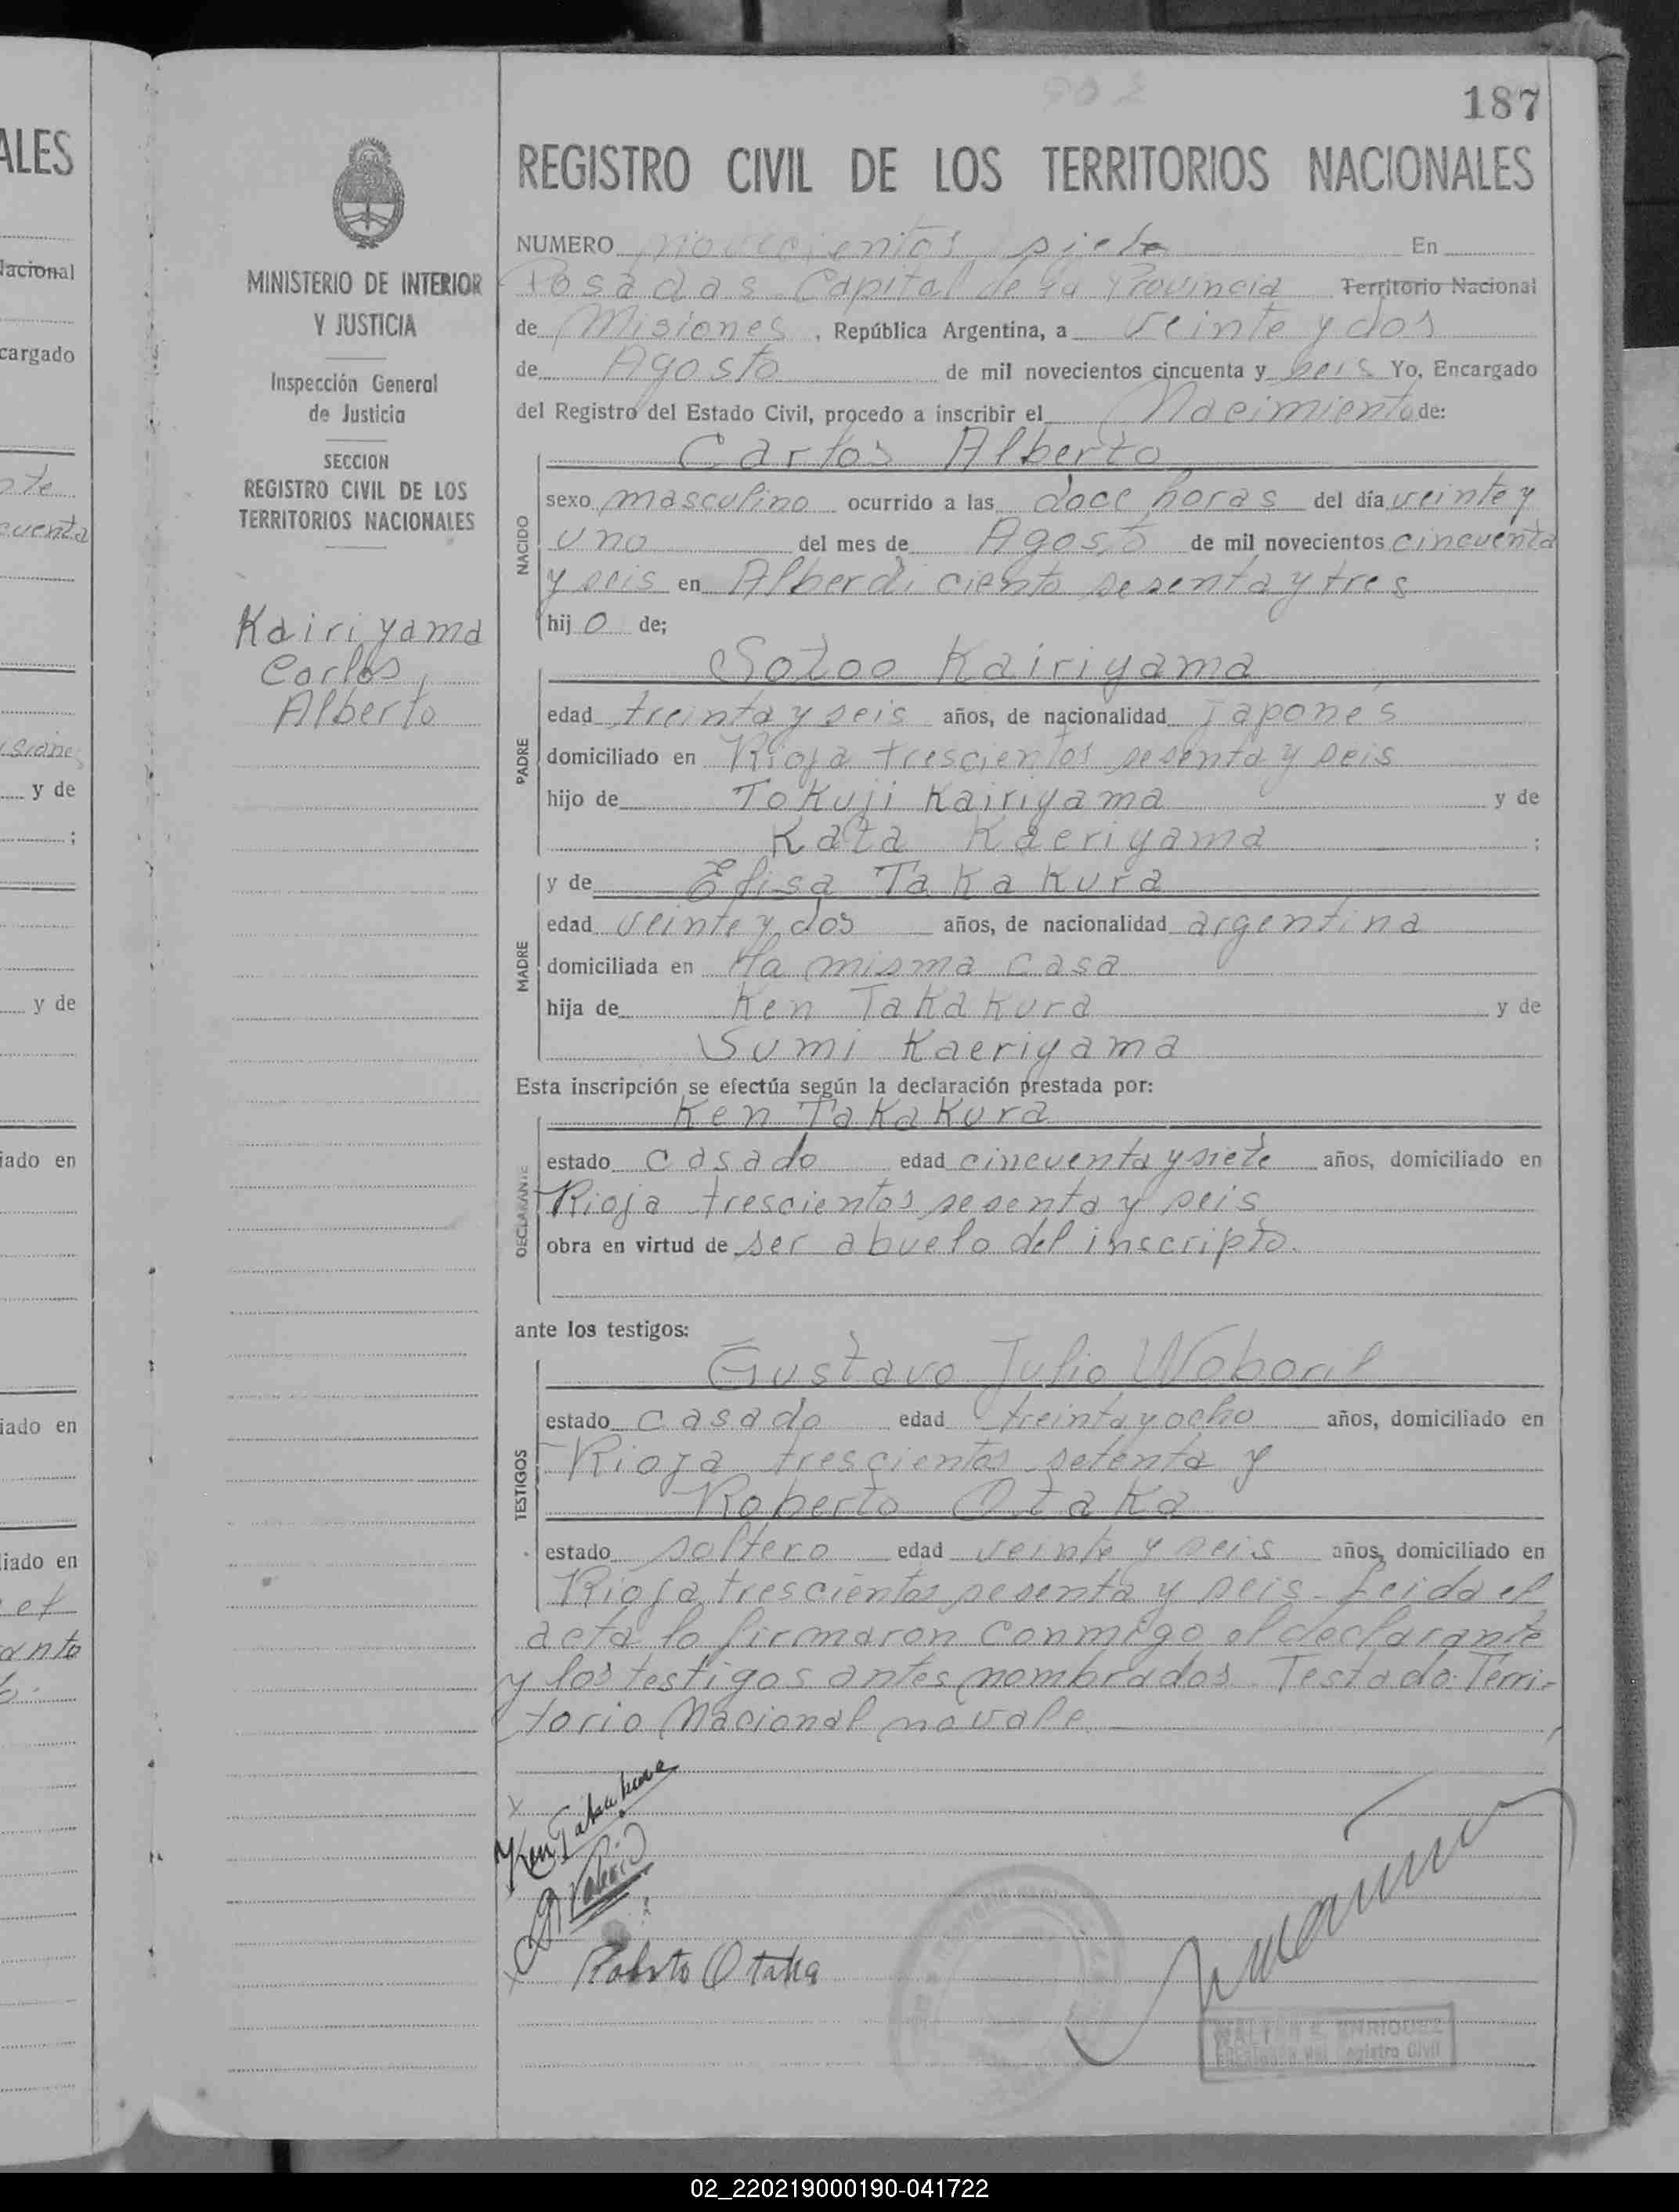 187
REGISTRO CIVIL DE LOS TERRITORIOS NACIONALES
NUMERO novecientos siete En
Posadas Capital de la Provincia Territorio Nacional
de Misiones, República Argentina, a veinte y dos
de Agosto de mil novecientos cincuenta y seis Yo, Encargado
del Registro del Estado Civil, procedo a inscribir el Nacimiento de:
Carlos Alberto
NACIDO
sexo masculino ocurrido a las doce horas del día veinte y
uno del mes de Agosto de mil novecientos cincuenta
y seis en Alberdi ciento sesenta y tres
hijo de;
Sotoo Kairiyama
PADRE
edad treinta y seis años, de nacionalidad japones
domiciliado en Rioja trescientos sesenta y seis
hijo de Tokuji Kairiyama y de
Kata Kaeriyama ;
y de Elisa Takakura
MADRE
edad veinte y dos años, de nacionalidad argentina
domiciliada en la misma casa
hija de Ken Takakura y de
Sumi Kaeriyama
Esta inscripción se efectúa según la declaración prestada por:
Ken Takakura
DECLARANTE
estado casado edad cincuenta y siete años, domiciliado en
Rioja trescientos sesenta y seis
obra en virtud de ser abuelo del inscripto.
ante los testigos:
Gustavo Julio Woboril
TESTIGOS
estado casado edad treinta y ocho años, domiciliado en
Rioja trescientos setenta y
Roberto Otaka
estado soltero edad veinte y seis años, domiciliado en
Rioja trescientos sesenta y seis - Leida el
acta la firmaron conmigo el declarante
y los testigos antes nombrados. Testado: Terri-
torio Nacional no vale
Ken Takakura
Roberto Otaka
WALTER E. ENRIQUEZ
Encargado del Registro Civil
MINISTERIO DE INTERIOR
Y JUSTICIA
Inspección General
de Justicia
SECCION
REGISTRO CIVIL DE LOS
TERRITORIOS NACIONALES
Kairiyama
Carlos
Alberto
ALES
Nacional
cargado
cuenta
y de
;
y de
iado en
iado en
liado en
02_220219000190-041722